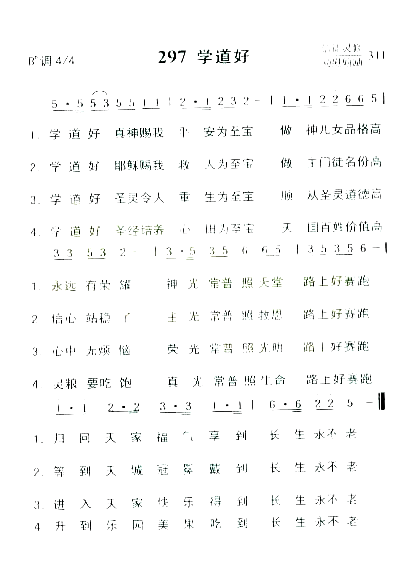 297 学道好
B♭调 4/4
311
5·5 5 3 5 5 5 1 1 - 2·1 2 3 2 - 5·5 5 3 5
1. 学道好 真神赐我 平安为至宝 做神儿女品格高
2 学道好 耶稣赐我 救人为至宝 做主门徒名份高
3. 学道好 圣灵令人 重生为至宝 顺从圣灵道德高
4. 学道好 圣经培养 心田为宝 天国百姓价值高
3 3 5 3 2 - 3·5 3 5 6 6 5 1·1
1. 永远有荣耀 神光常普照天堂 路上好赛跑
2 信心站稳了 主光常普照救恩 路上好赛跑
3 心中无烦恼 荣光常普照光明 路上好赛跑
4 灵粮要吃饱 真光常普照生命 路上好赛跑
1·1 2·2 3·3 2·1 6·6 2 2 5 -
1. 归回天家福气享到长生永不老
2. 等到天城冠冕戴到长生永不老
3. 进入天家快乐得到长生永不老
4 升到乐园美果吃到长生永不老